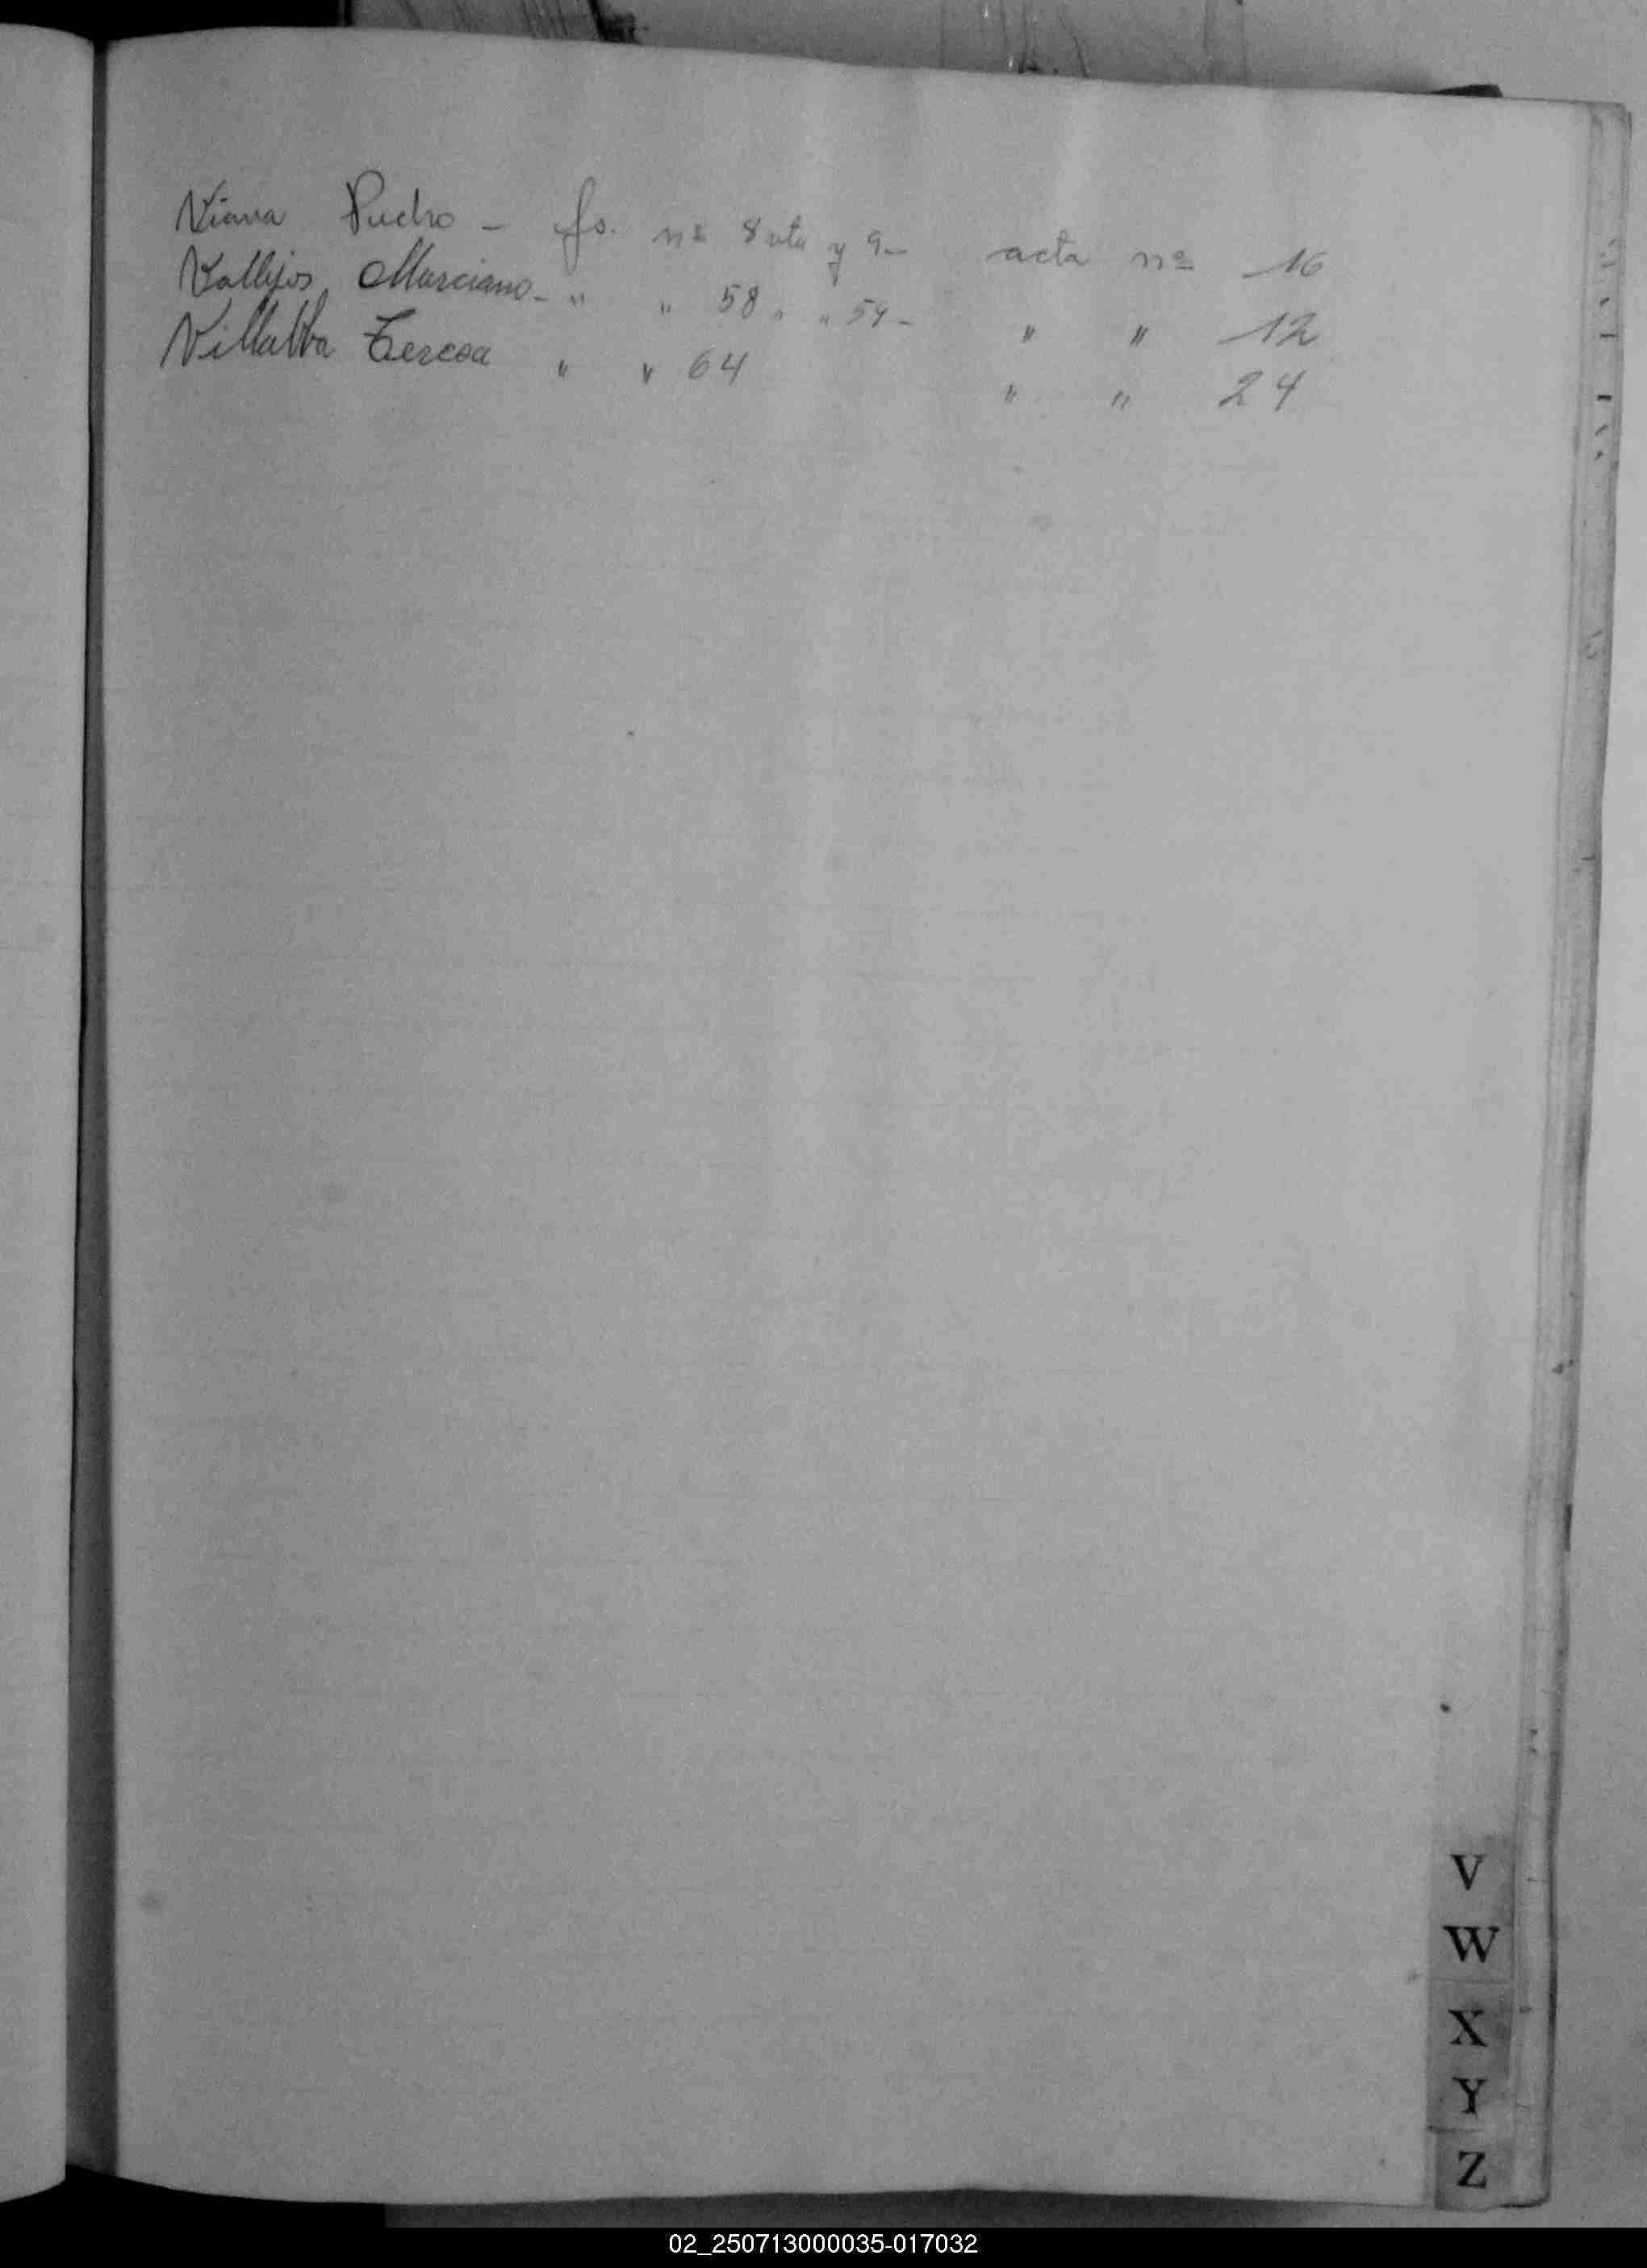 Viana Pedro - fs. nº 8 vta y 9- acta nº 16
Vallejos, Marciano - " " 58 " " 59 - " " 12
Villalba Teresa " " 64 " " 24
V
W
X
Y
Z
02_250713000035-017032